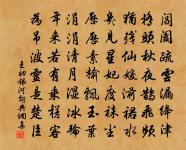 閶闔疏雲漏絳津
橋頭秋夜鵲飛頻
猶殘仙媛湔裙水
幾見星妃度襪塵
歷歷素榆飄玉葉
涓涓清月濕冰輪
年來若有乘槎客
為吊波靈是楚臣
王初銀河詞典網集